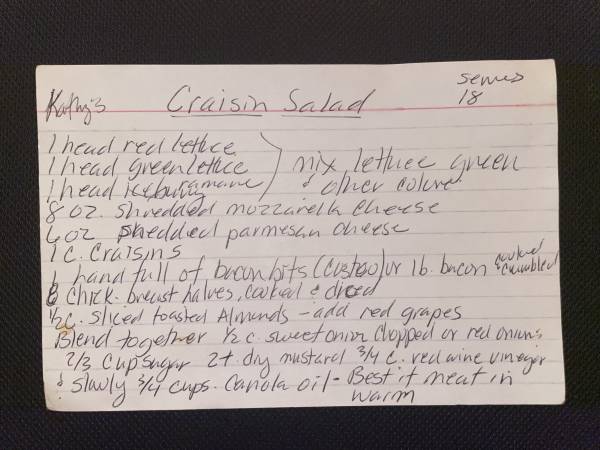 Kathy's Craisin Salad serves 18
1 head red lettuce
1 head green lettuce mix lettuce green
1 head romaine & other colored
8 oz. shredded mozzarella cheese
6 oz shredded parmesan cheese
1 c. craisins
1 hand full of bacon bits (Costco) or 1 lb. bacon cooked & crumbled
6 chick. breast halves, cooked & diced
1/2 c. sliced toasted Almonds - add red grapes
Blend together 1/2 c. sweet onion chopped or red onions
2/3 cup sugar 2 t dry mustard 3/4 c. red wine vinegar
& slowly 3/4 cups. Canola oil - Best if meat in
warm